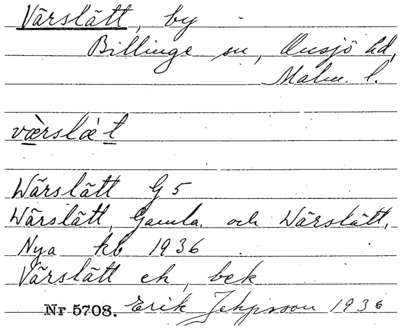 Värslätt, by
Billinge sn, Onsjö hd,
Malm. l.
værslæ̀t
Wärslätt G5
Wärslätt, Gamla och Wärslätt,
Nya kb 1936
Värslätt ek, bek
Nr 5708. Erik Jeppsson 1936